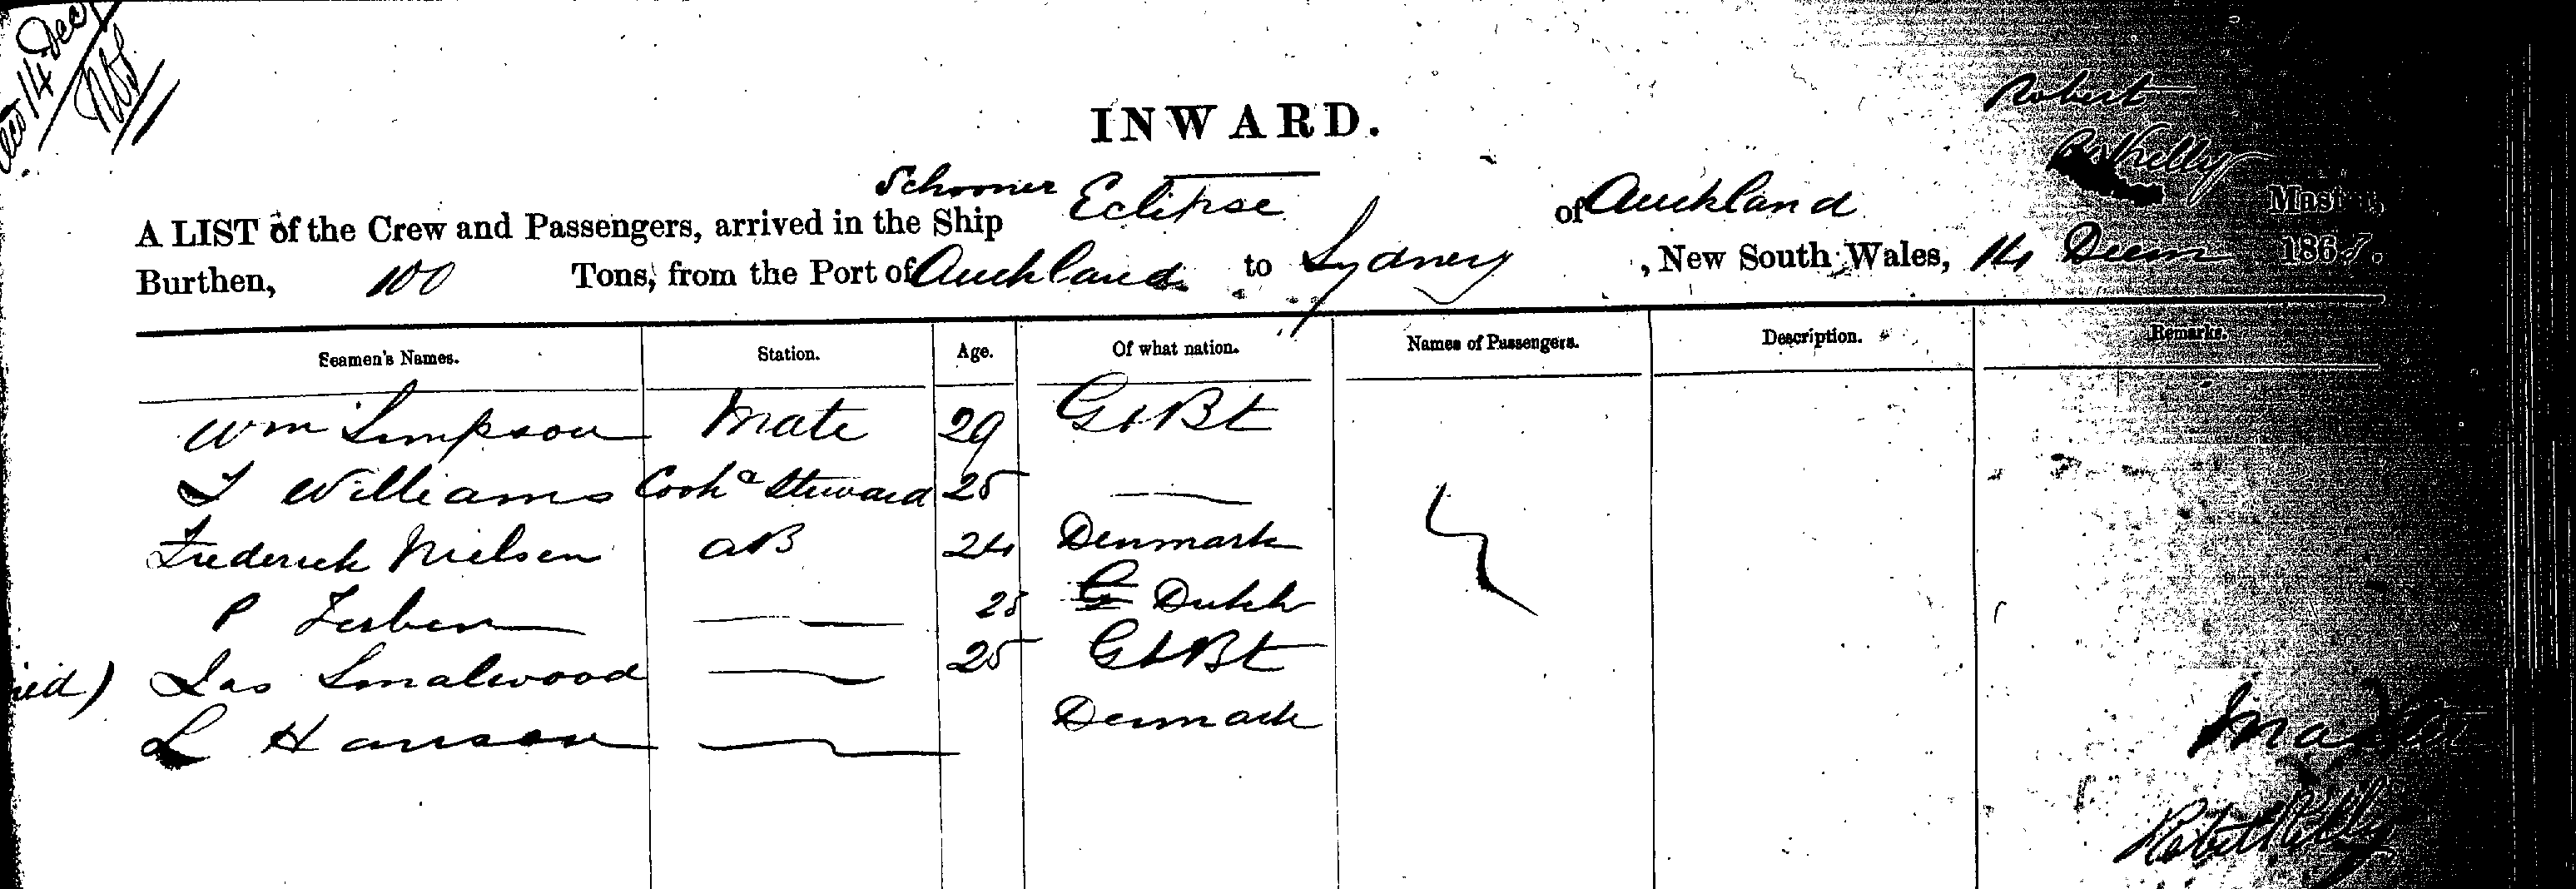 14 Dec
INWARD.
Robert
Kelly
A LIST of the Crew and Passengers, arrived in the Ship Schooner Eclipse of Auckland Master,
Burthen, 100 Tons, from the Port of Auckland to Sydney, New South Wales, 14 Decem 1868.
Seamen's Names. Station. Age. Of what nation. Names of Passengers. Description. Remarks.
Wm Simpson Mate 29 Gt Bt
Williams Cook & Steward 25 —
Frederick Nielsen AB 24 Denmark
P — 28 Dutch
Jas Smalwood — 25 Gt Bt
L Hanson — Denmark
Master
Robert Kelly